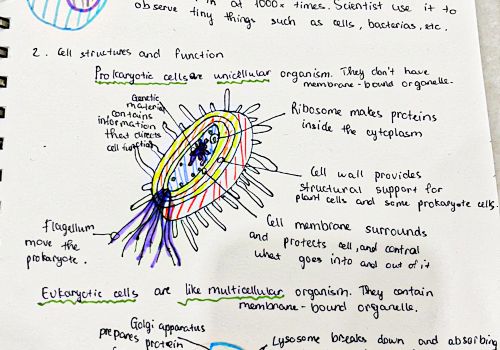 at 1000x times. Scientist use it to
observe tiny things such as cells, bacterias, etc.
2. Cell structures and function
Prokaryotic cells are unicellular organism. They don't have
membrane-bound organelle.
Genetic
material
contains
information
that directs
cell function
Ribosome makes proteins
inside the cytoplasm
Cell wall provides
structural support for
plant cells and some prokaryote cells.
Flagellum
move the
prokaryote.
Cell membrane surrounds
and protects cell, and control
what goes into and out of it
Eukaryotic cells are like multicellular organism. They contain
membrane-bound organelle.
Golgi apparatus
prepares protein
Lysosome breaks down and absorbing